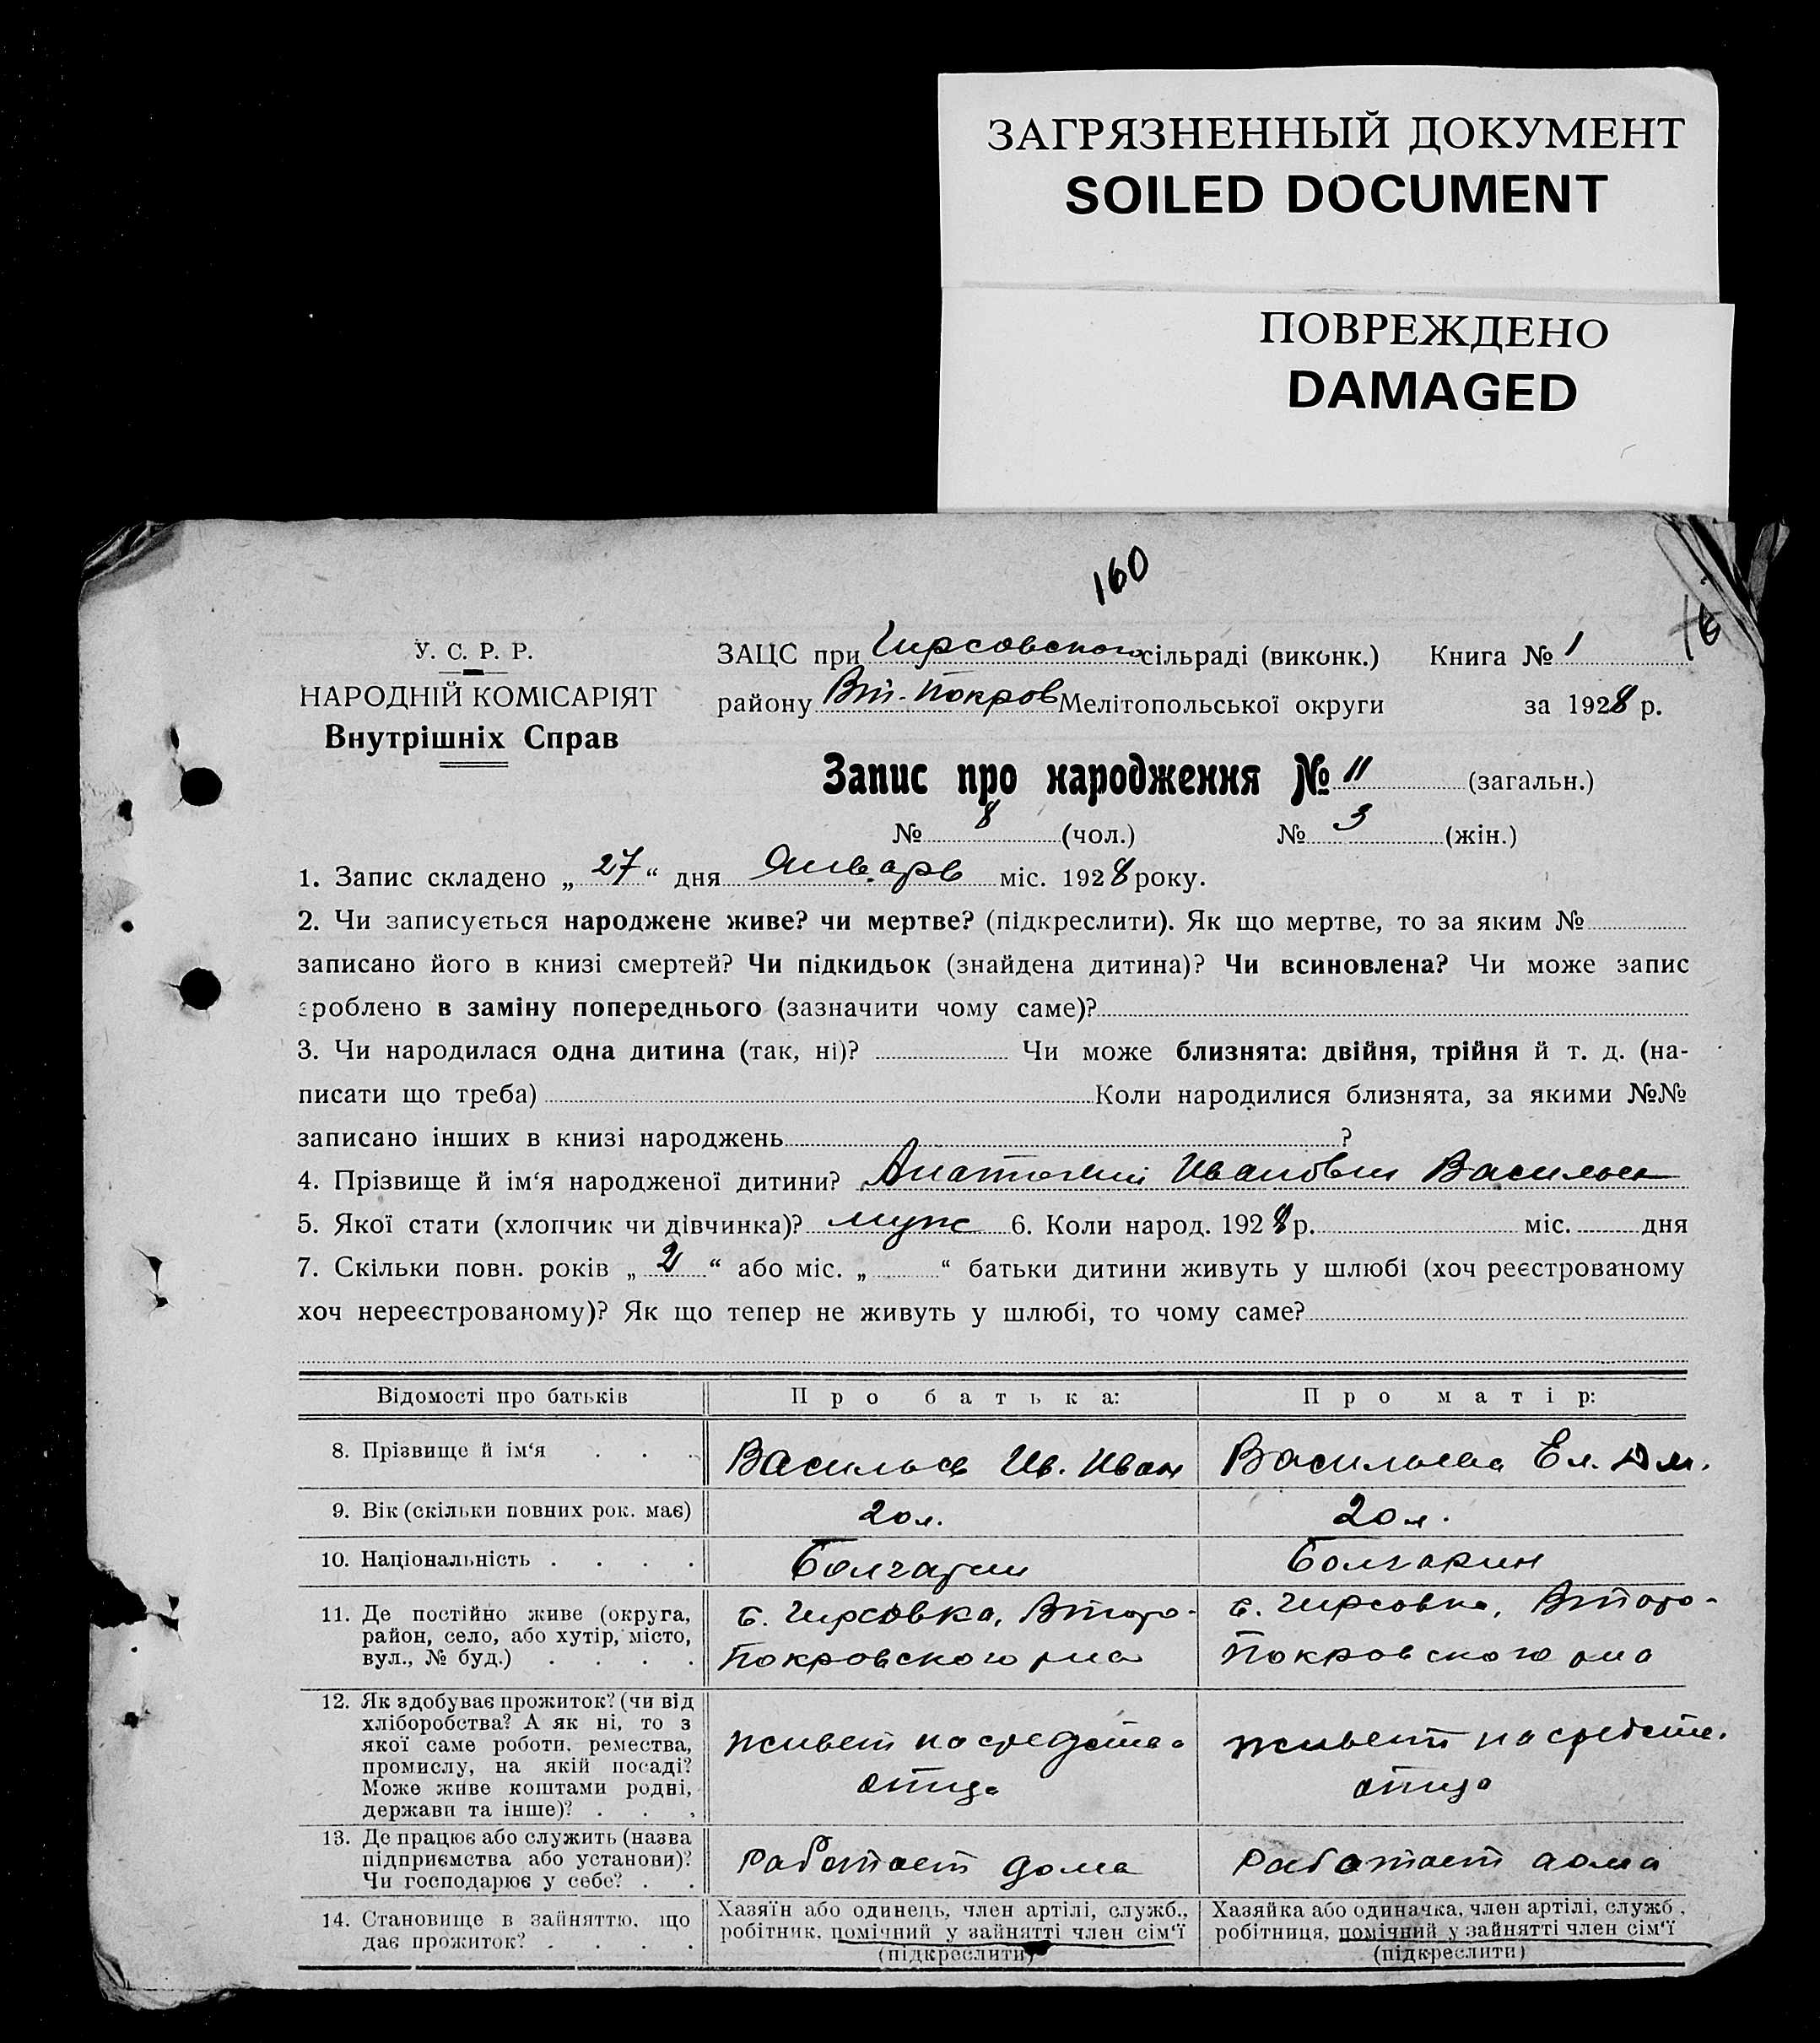 ЗАГРЯЗНЕННЫЙ ДОКУМЕНТ
SOILED DOCUMENT
ПОВРЕЖДЕНО
DAMAGED
160
У. С. Р. Р.
НАРОДНІЙ КОМІСАРІЯТ
Внутрішніх Справ
ЗАЦС при Гирсовского сільраді (виконк.) Книга № 1
району Вт. Покров Мелітопольської округи за 1928 р.
Запис про народження № 11 (загальн.)
№ 8 (чол.) № 3 (жін.)
1. Запис складено „ 27 “ дня Января міс. 1928 року.
2. Чи записується народжене живе? чи мертве? (підкреслити). Як що мертве, то за яким №
записано його в книзі смертей? Чи підкидьок (знайдена дитина)? Чи всиновлена? Чи може запис
зроблено в заміну попереднього (зазначити чому саме)?
3. Чи народилася одна дитина (так, ні)? Чи може близнята: двійня, трійня й т. д. (на-
писати що треба) Коли народилися близнята, за якими №№
записано інших в книзі народжень ?
4. Прізвище й ім‘я народженої дитини? Анатолий Иванович Васильев
5. Якої стати (хлопчик чи дівчинка)? муж 6. Коли народ. 1928 р. міс. дня
7. Скільки повн. років „ 2 “ або міс. „ “ батьки дитини живуть у шлюбі (хоч реєстрованому
хоч нереєстрованому)? Як що тепер не живуть у шлюбі, то чому саме?
Відомості про батьків Про батька: Про матір:
8. Прізвище й ім‘я Васильев Ив. Иван Васильева Ел. Дм.
9. Вік (скільки повних рок. має) 20 л. 20 л.
10. Національність Болгарин Болгарин
11. Де постійно живе (округа, район, село, або хутір, місто, вул., № буд.)
с. Гирсовка, Второ-
Покровского р-на
с. Гирсовка, Второ-
Покровского р-на
12. Як здобуває прожиток? (чи від
хліборобства? А як ні, то з
якої саме роботи, ремества,
промислу, на якій посаді?
Може живе коштами родні,
держави та інше)?
живет на средства
отца
живет на средств.
отца
13. Де працює або служить (назва
підприємства або установи)?
Чи господарює у себе?
Работает дома
Работает дома
14. Становище в зайняттю, що
дає прожиток?
Хазяїн або одинець, член артілі, служб.,
робітник, помічний у зайнятті член сім‘ї
(підкреслити)
Хазяйка або одиначка, член артілі, служб.,
робітниця, помічний у зайнятті член сім‘ї
(підкреслити)